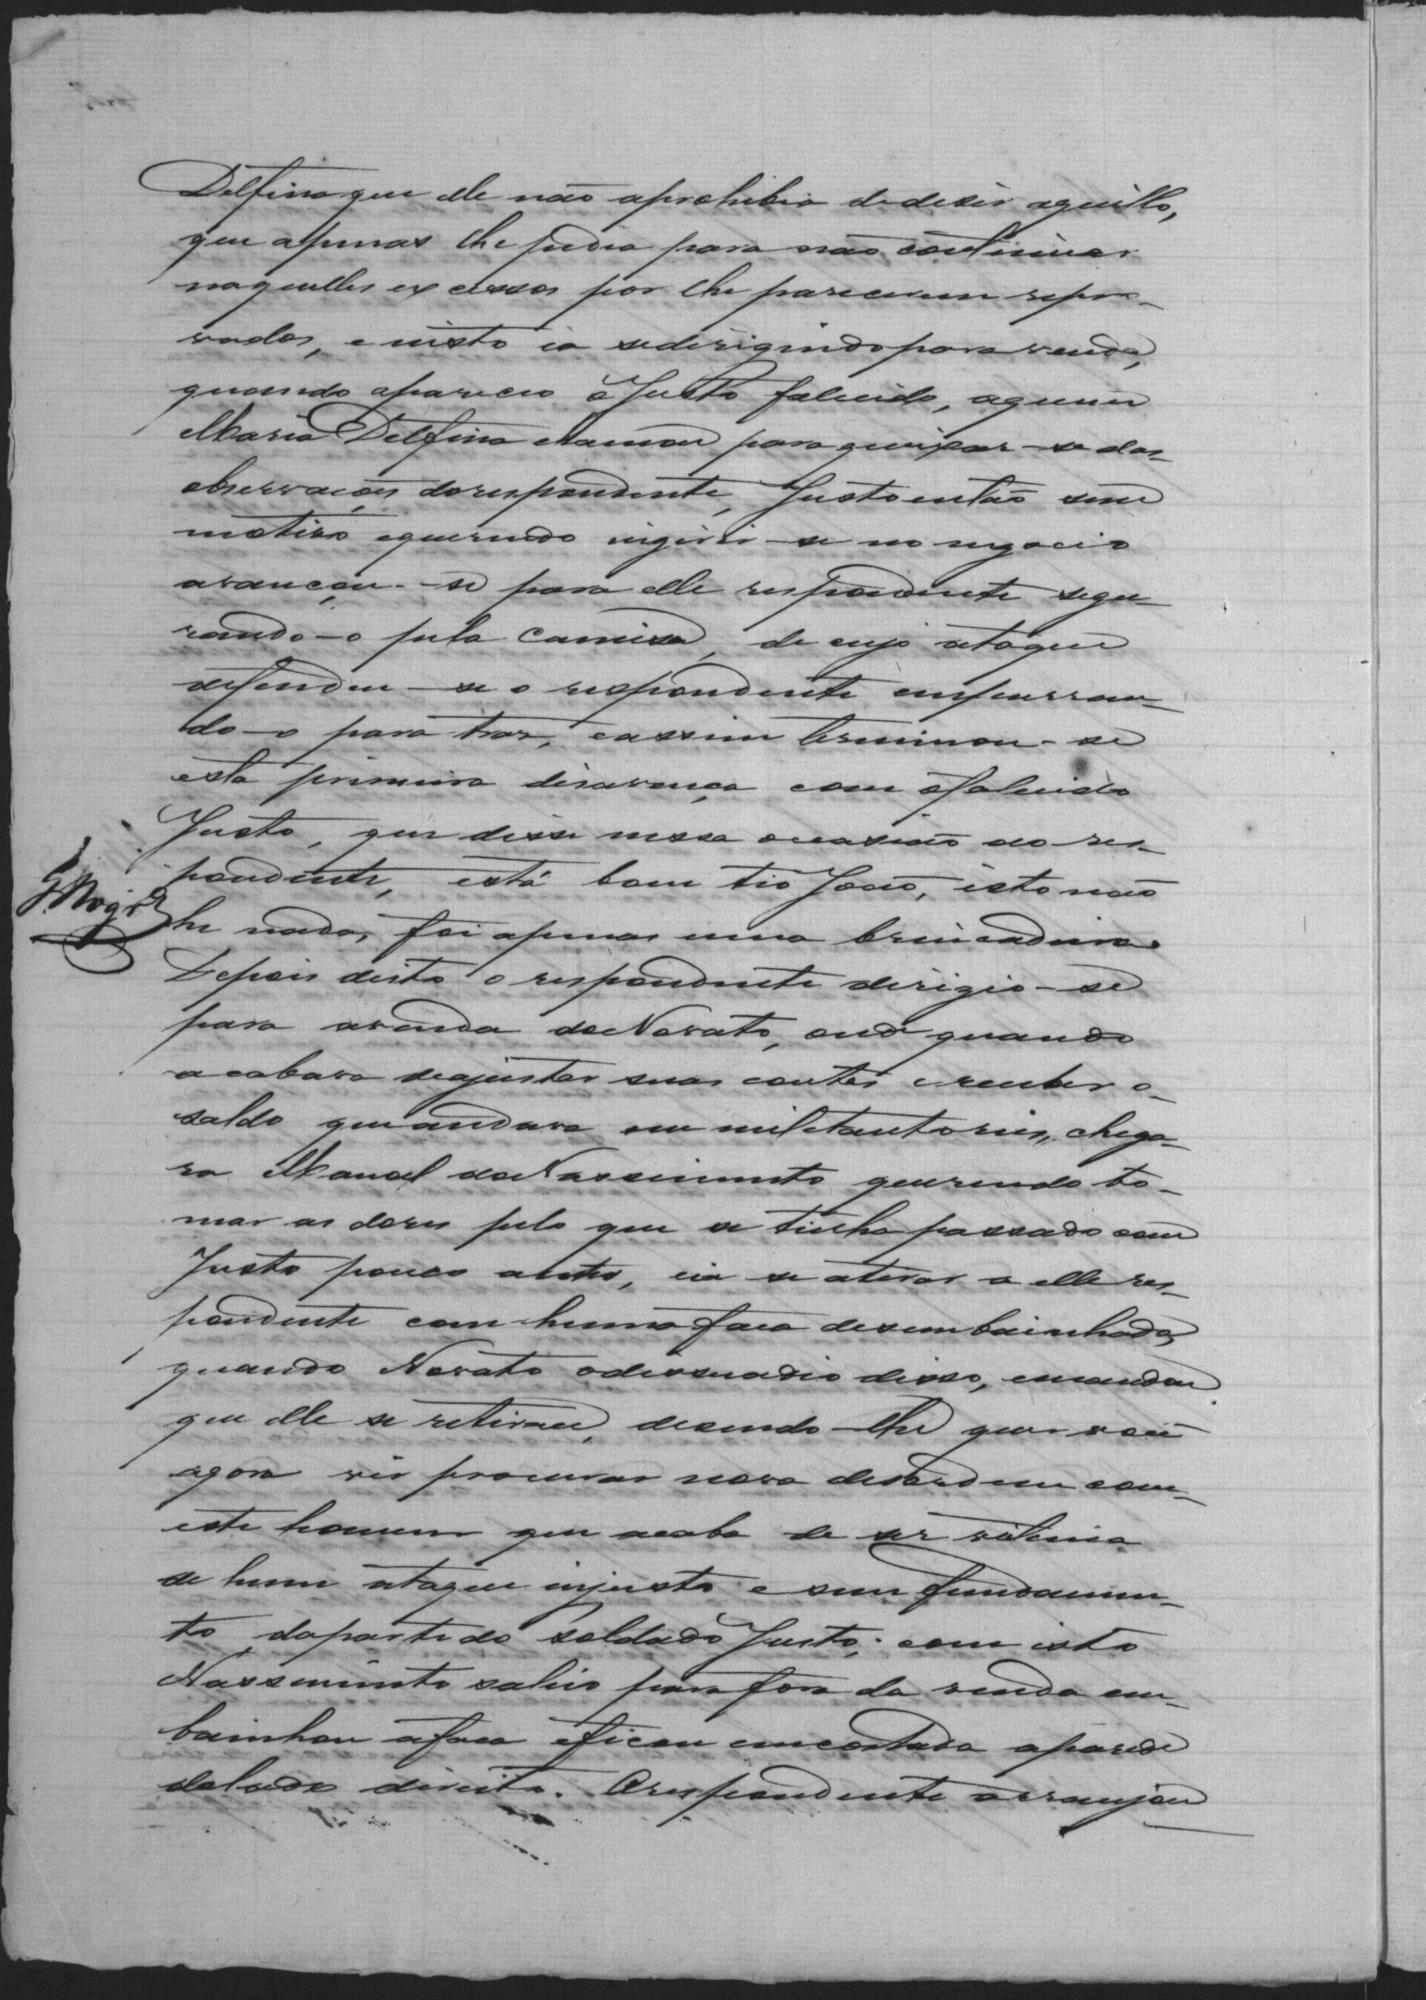 Delfina que elle não aprohibia dedesir aquillo,
que apenas lhe pedia para não continuar
naquelles excessos por lhe parecerem repro-
vados, e nisto ia sedirigindo para venda,
quando apareceo o Justo falecido, aquem
Maria Delfina chamou para queixar-se das
observações dorespondente, Justo então sem
motivo equerendo ingirir-se no negocio
avançou-se para elle respondente segu-
rando-o pela camisa, de cujo ataque
defendeu-se o respondente empurran-
do-o para tras, eassim terminou-se
esta primeira desavença com ofalecido
Justo, que disse nessa occasião ao res-
pondente, está bom tio João, isto não
he nada, foi apenas uma brincadeira.
Depois disto o respondente dirigio-se
para avenda do Novato, onde quando
acabava deajustar suas contas e receber o
saldo que andava em mil e tantos reis, chega-
ra Manoel do Nascimento querendo to-
mar as dores pelo que se tinha passado com
Justo pouco antes, ia se atirar a elle res-
pondente com huma faca desembainhada,
quando Novato odissuadio disso, emandou
que elle se retirace, desendo-lhe quer você
agora vir procurar nova desordem com
este homem que acaba de ser victima
de hum ataque injusto e sem fundamen-
to, daparte do soldado Justo; com isto
Nassimento sahio para fora da venda em-
bainhou afaca eficou emcostado aparede
dolado direito. Orespondente arranjou